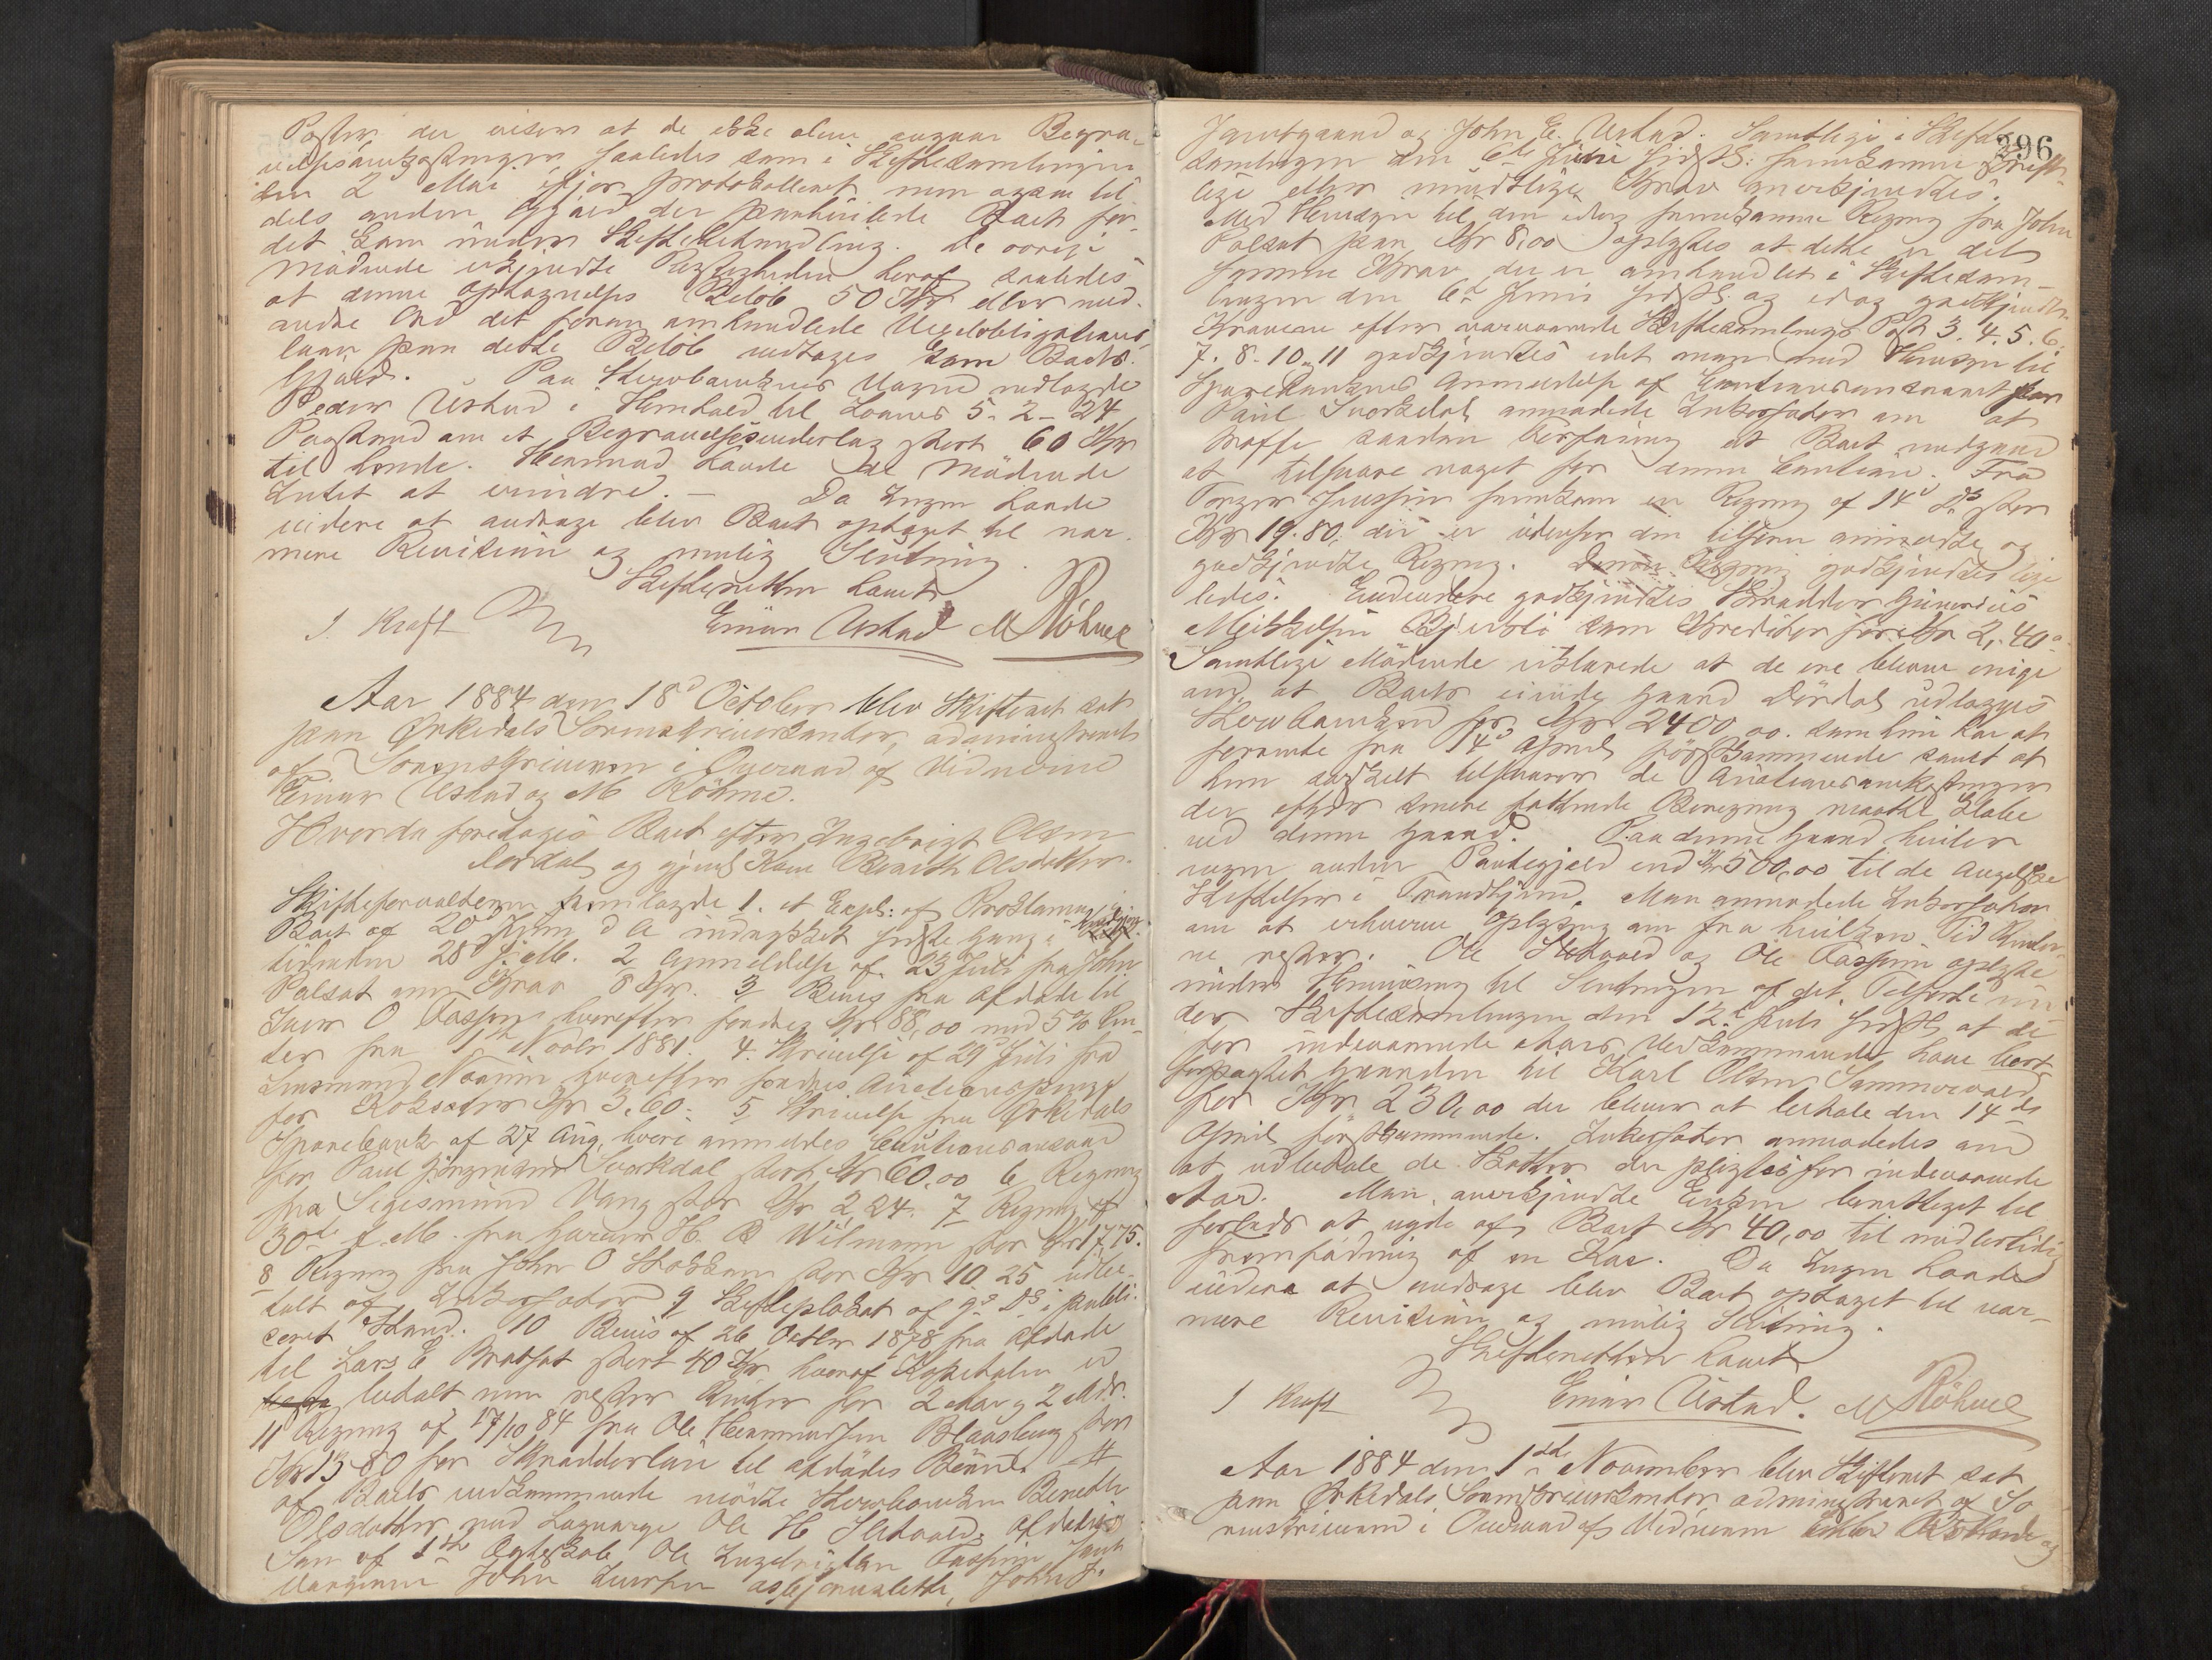 Poster, der vises at de ikke alene angaar Begra-
velsesomkostninger saaledes som i Skiftesamlingen
den 2 Mai ifjor protokolleret men ogsaa til
dels anden Gjæld der paahvilede Boet før
det kom under Skiftebehandling. De øvrige
Mødende erkjendte Rigtigheden heraf saaledes
at denne optagnelses Beløb 50 Kr eller med
andre Ord det foran omhandlede Vexelobligations
laan paa dette Beløb udtages som Boets
Gjæld. Paa Skovbækens Vegne nedlagde
Peder Ustad i Henhold til Lovens 5-2-24
Paastand om et Begravelsesvederlag stort 60 Kr
til hende. Hermed havde de Mødende
Intet at erindre. - Da Ingen havde
videre at andrage blev Boet optaget til nær-
mere Revision og mulig Slutning.
Skifteretten hævet
J. Kraft Einar Ustad M Röhme
Aar 1884 den 18d October blev Skifteret sat
paa Ørkedals Sorenskriverkontor, administreret
af Sorenskriveren i Overvær af Vidnerne
Einar Ustad og M Röhme.
Hvorda foretoges Boet efter Ingebrigt Olsen
Dørdal og gjenl. Kone Berith Olsdatter.
Skifteforvalteren fremlagde 1. et Expl: af Proklama i
Boet af 20d Juni d A indrykket første Gang i
tidenden 28d s. M. 2 Anmeldelse af 23 Juli fra John
Solsat om Krav 8 Kr. 3 Bevis fra Afdøde til
Iver O Fossem hvorefter fordres Kr 88,00 med 5% Ren-
ter fra 1ste Novbr 1881. 4. Skrivelse af 29d Juli fra
Lensmand Noerum hvorefter fordres Auctionspenge
for Kokostør Kr 3.60. 5 Skrivelse fra Ørkedals
Sparebank af 27 Aug. hvori anmeldes Cautionsansvar
for Paul Jörgensen Svorkdal stort Kr 60.00 6 Regning
fra Sigismund Vang stor Kr 2 24. 7 Regning af
30te f. M. fra Garver H. B Wilmann stor Kr 17.75.
8 Regning fra John O Stokkan stor Kr 10.25 udbe-
talt af Inkassator 9 Skifteplakat af 9d Ds i publi-
ceret Stand. 10 Bevis af 26 Octbr 1878 fra Afdøde
til Lars E Bratset stort 40 Kr hvoraf Kapitalen er
betalt men rester Renter for 2 Aar og 2 Mdr.
11 Regning af 17/10 84 fra Ole Hermundsen Blaasberg stor
Kr 13 80 for Skrædderløn til afdødes Bønd.
af Boets vedkommende mødte Skovbækens Berethe
Olsdatter med Lagværge Ole H Solvold, Afdødes
Søn af 1ste Ægteskab Ole Ingebrigtsen Fossum samt
Værgerne John Iversen Asbjørnslette, John J.
296
Jamtgaard og John E. Ustad. Samtlige i Skifte-
samlingen den 6te Juni sidstl: fremkomne skrift-
lige eller mundtlige Krav anerkjendtes.
Med Hensyn til den idag fremkomne Regning fra John
Solsat paa Kr 8,00 oplystes at dette er det
samme Krav der er omhandlet i Skiftesam-
lingen den 6te Juni sidstl: og idag godkjendt.
Kravene efter nærværende Skiftesamlings Post 3. 4. 5. 6.
7. 8. 10. 11 godkjendtes idet man med Hensyn til
Sparebankens Anmeldelse af Cautionsansvaret for
Paul Svorkdal anmodede Inkassator om at
træffe saadan Føranstaltning at Boet undgaar
at tilsvare noget for denne Caution. Fra
Torger Jensen fremkom en Regning af 14d Ds stor
Kr 19.80. der er udenfor den tilforn anmeldte og
godkjendte Regning. Denne Regning godkjendtes lige
ledes. Endvidere godkjendtes Skrædder Gunerius
Mikkelsen Bjervli som Kreditor for Kr 2.40.
Samtlige Mødende erklærede at de ere blevne enige
om at Boets eiende Gaard Dørdal udlægges
Skovbækens for Kr 2400.00. som hun har at
forrente fra 14d April førstkommende samt at
hun særskilt tilsvarer de Auctionsomkostninger
der efter senere sattende Beregning maatte klæbe
ved denne Gaard. Paa denne Gaard hviler
ingen anden Pantegjæld end Kr 500,00 til de Angelske
Stiftelser i Trondhjem. Man anmodede Inkassator
om at erhverve Oplysning om fra hvilken Tid Renter-
ne rester. Ole Solvold og Ole Fossum oplyste
under Henvisning til Slutningen af det Tilførte un-
der Skiftesamlingen den 12te Juli sidstl, at de
for indeværende Aars Vedkommende have bort
forpagtet Gaarden til Karl Olsen Sommervold
for Kr 230,00 der bliver at betale den 14de
April førstkommende. Inkassator anmodedes om
at udbetale de Skatter der pligtes for indeværende
Aar. Man anerkjendte Enken berettiget til
forlods at nyde af Boet Kr 40,00 til midlertidig
fremfødning af en Ko. Da Ingen havde
videre at andrage blev Boet optaget til nær-
mere Revision og mulig Slutning.
Skifteretten hævet
J Kraft Einar Ustad. M Röhme
Aar 1884 den 1ste November blev Skifteret sat
paa Ørkedals Sorenskriverkontor administreret af So
renskriveren i Overvær af Vidnerne og